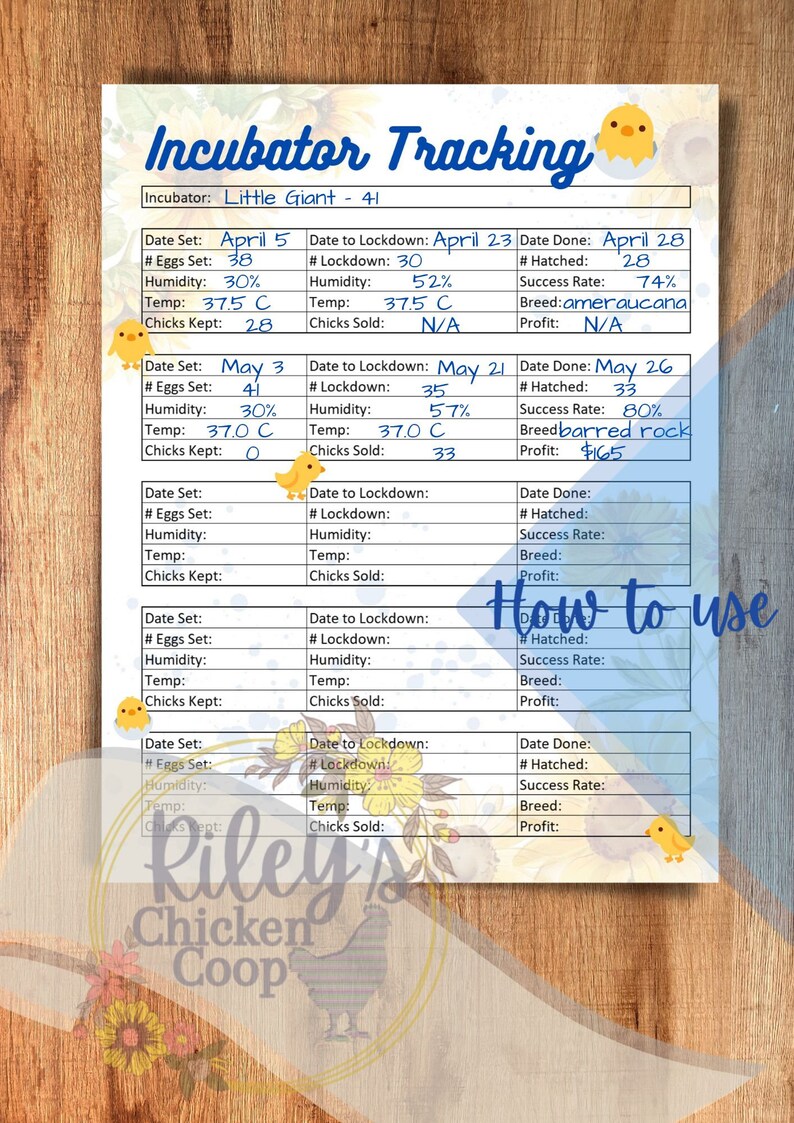 Incubator Tracking
Incubator: Little Giant - 41
Date Set: April 5 Date to Lockdown: April 23 Date Done: April 28
# Eggs Set: 38 # Lockdown: 30 # Hatched: 28
Humidity: 30% Humidity: 52% Success Rate: 74%
Temp: 37.5 C Temp: 37.5 C Breed: ameraucana
Chicks Kept: 28 Chicks Sold: N/A Profit: N/A
Date Set: May 3 Date to Lockdown: May 21 Date Done: May 26
# Eggs Set: 41 # Lockdown: 35 # Hatched: 33
Humidity: 30% Humidity: 57% Success Rate: 80%
Temp: 37.0 C Temp: 37.0 C Breed: barred rock
Chicks Kept: 0 Chicks Sold: 33 Profit: $165
Date Set: Date to Lockdown: Date Done:
# Eggs Set: # Lockdown: # Hatched:
Humidity: Humidity: Success Rate:
Temp: Temp: Breed:
Chicks Kept: Chicks Sold: Profit:
How to use
Date Set: Date to Lockdown: Date Done:
# Eggs Set: # Lockdown: # Hatched:
Humidity: Humidity: Success Rate:
Temp: Temp: Breed:
Chicks Kept: Chicks Sold: Profit:
Date Set: Date to Lockdown: Date Done:
# Eggs Set: # Lockdown: # Hatched:
Humidity: Humidity: Success Rate:
Temp: Temp: Breed:
Chicks Kept: Chicks Sold: Profit:
Riley's
Chicken
Coop